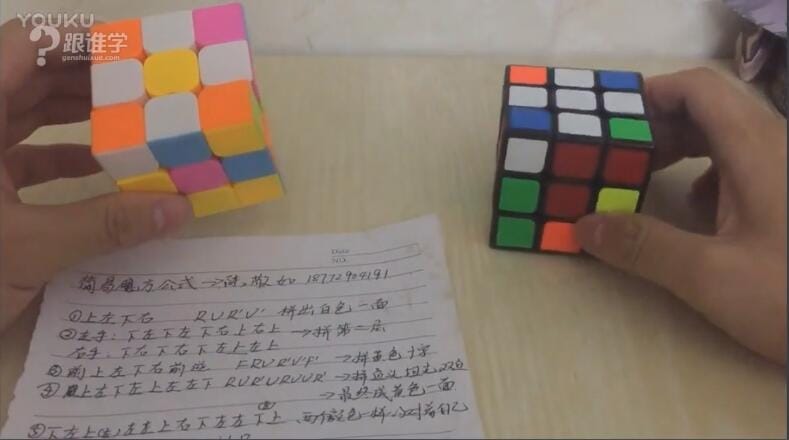 YOUKU
跟谁学
genshuixue.com
Date
NO.
简易魔方公式→
18772904191
①上左下右 RUR'U' 拼出白色一面
②左手:下左下左下右上右上→拼第二层
右手:下右下右下左上左上
③前上左下右前逆 FRUR'U'F'→拼黄色十字
④上左下左上左左下 RUR'URUUR'
→最终成黄色一面
⑤下左上
左左上右下左左下上